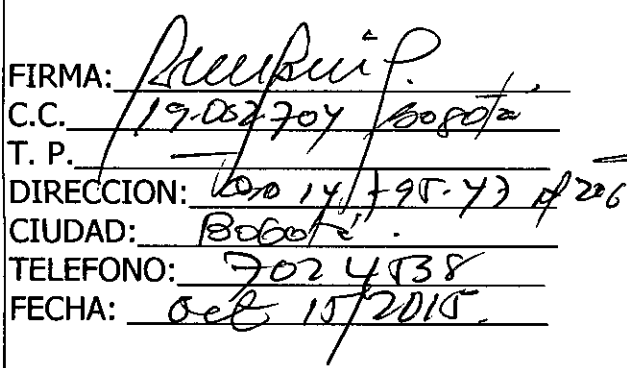 FIRMA:
C.C. 19.002704 Bogotá
T. P. —
DIRECCION: 14 # 95-47 206
CIUDAD: Bogotá.
TELEFONO: 702 4538
FECHA: Oct 15/2015.